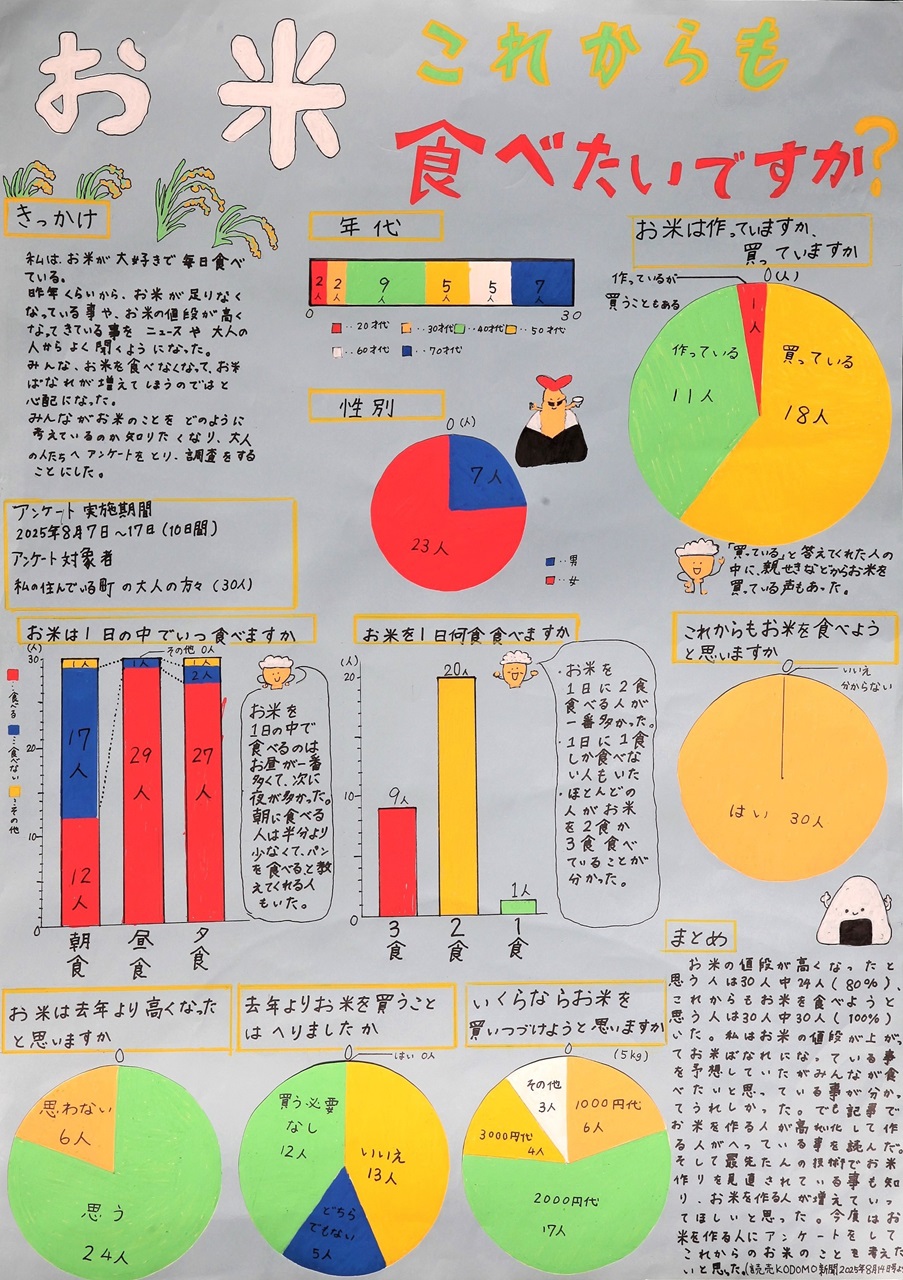 お米 これからも
食べたいですか?
きっかけ
私は、お米が大好きで毎日食べ
ている。
昨年くらいから、お米が足りなく
なっている事や、お米の値段が高く
なってきている事をニュースや大人の
人からよく聞くようになった。
みんな、お米を食べなくなって、お米
ばなれが増えてしまうのではと
心配になった。
みんながお米のことをどのように
考えているのか知りたくなり、大人
の人たちへアンケートをとり、調査をする
ことにした。
アンケート実施期間
2025年8月7日~17日(10日間)
アンケート対象者
私の住んでいる町の大人の方々(30人)
年代
2人
2
9
5
5
7
0
30
‥20才代
‥30才代
‥40才代
‥50才代
‥60才代
‥70才代
性別
0(人)
7人
23人
‥男
‥女
お米は作っていますか、
買っていますか
0(人)
作っているが
買うこともある
1人
作っている
11人
買っている
18人
「買っている」と答えてくれた人の
中に、親せきなどからお米を
買っている声もあった。
お米は1日の中でいつ食べますか
(人)
30
20
10
0
‥食べる
‥食べない
‥その他
その他 0人
1人
17人
12人
朝食
1人
29人
昼食
1人
2人
27人
夕食
お米を
1日の中で
食べるのは
お昼が一番
多くて、次に
夜が多かった。
朝に食べる
人は半分より
少なくて、パン
を食べると教
えてくれる人
もいた。
お米を1日何食食べますか
(人)
20
10
0
9人
20人
1人
3食
2食
1食
・お米を
1日に2食
食べる人が
一番多かった。
・1日に1食
しか食べな
い人もいた
・ほとんどの
人がお米
を2食か
3食食べ
ていることが
分かった。
これからもお米を食べよう
と思いますか
0
いいえ
分からない
はい 30人
お米は去年より高くなった
と思いますか
0
思わない
6人
思う
24人
去年よりお米を買うこと
はへりましたか
0
はい 0人
買う必要
なし
12人
いいえ
13人
どちら
でもない
5人
いくらならお米を
買いつづけようと思いますか
0
(5kg)
その他
3人
1000円代
6人
3000円代
4人
2000円代
17人
まとめ
お米の値段が高くなったと
思う人は30人中24人(80%)、
これからもお米を食べようと
思う人は30人中30人(100%)
いた。私はお米の値段が上がっ
てお米ばなれになっている事
を予想していたがみんなが食
べたいと思っている事が分かっ
てうれしかった。でも記事で
お米を作る人が高れい化して作
る人がへっている事を読んだ。
そして最先たんの技術でお米
作りを見直されている事も知
り、お米を作る人が増えていっ
てほしいと思った。今度はお
米を作る人にアンケートをして
これからのお米のことを考えた
いと思った。(読売KODOMO新聞2025年8月14日号より